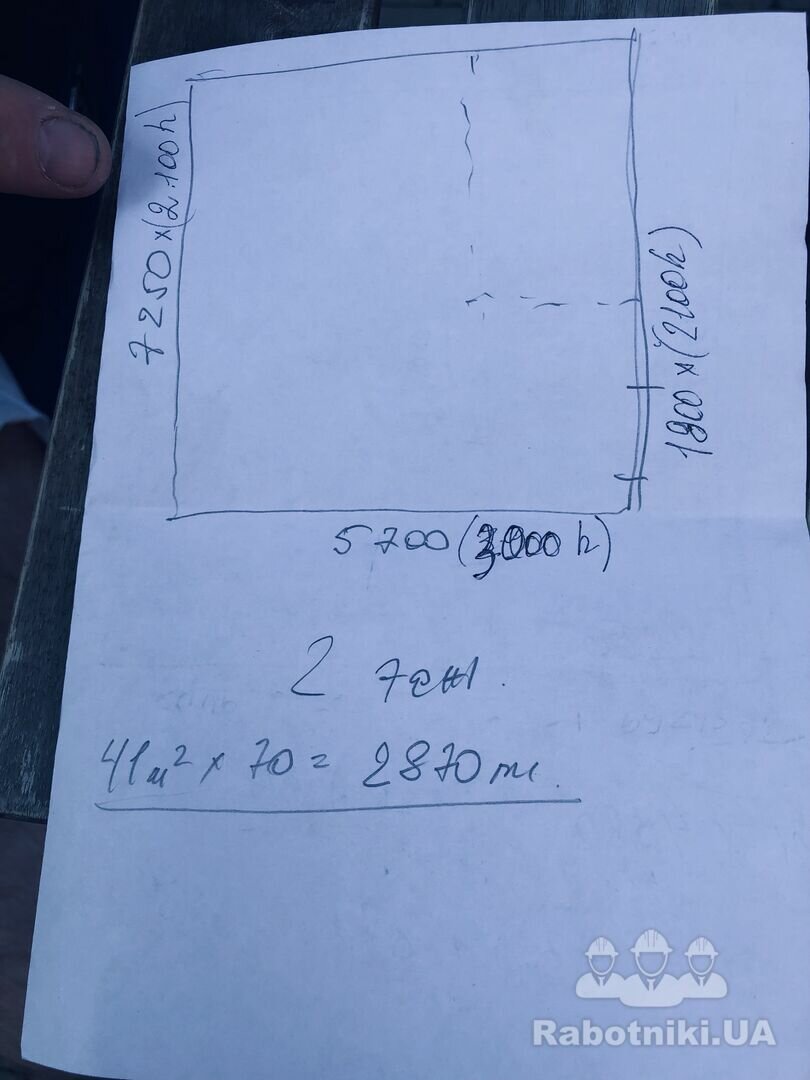 7250 x (2100h)
1800 x (2100h)
5700 (3000 h)
2
41м² x 70 = 2870
Rabotniki.UA